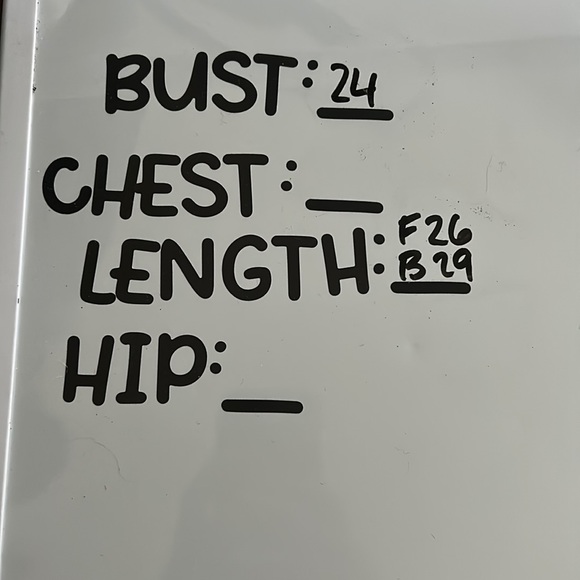 BUST: 24
CHEST: _
LENGTH: F 26
B 29
HIP: _